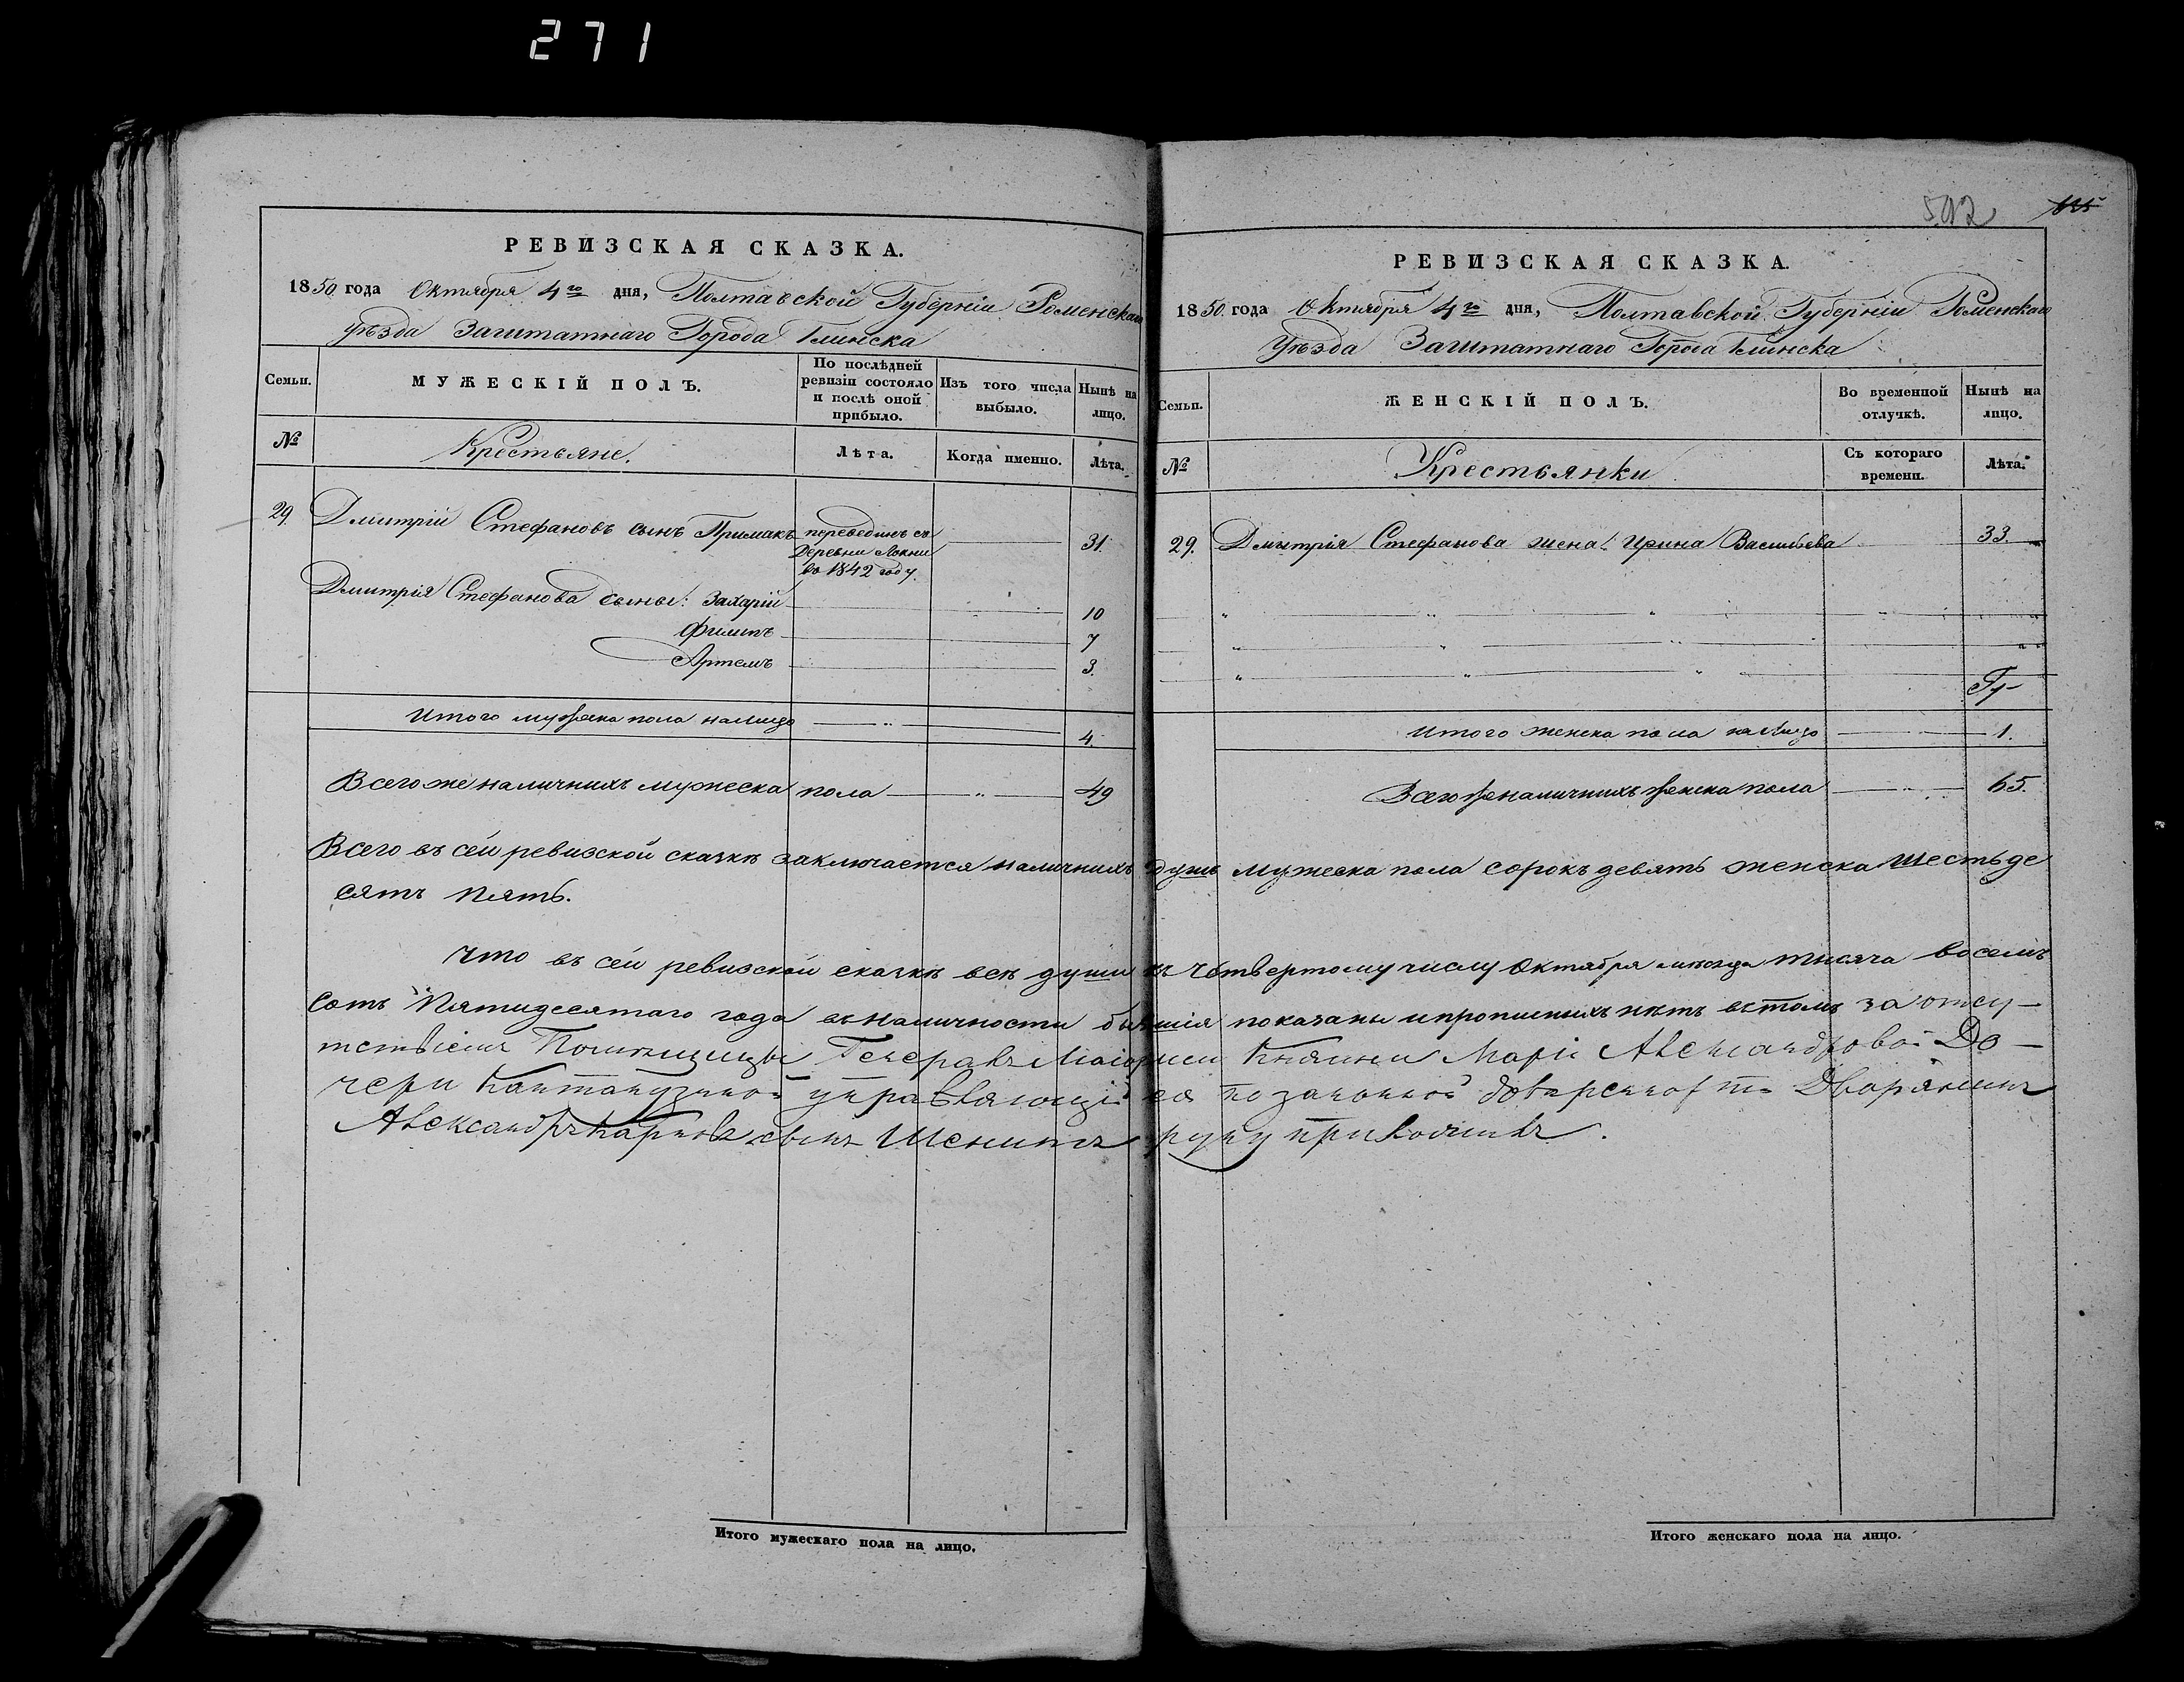 271
592
РЕВИЗСКАЯ СКАЗКА.
1850 года Октября 4го дня, Полтавской Губерніи Роменскаго
уѣзда Заштатнаго Города Глинска
Семьи.
МУЖЕСКІЙ ПОЛЪ.
По послѣдней ревизіи состояло и послѣ оной прибыло.
Изъ того числа выбыло.
Нынѣ на лицо.
№
Крестьяне.
Лѣта.
Когда именно.
Лѣта.
29. Дмитрій Стефановъ сынъ Примакъ переведенъ съ 31.
Деревни Локни
во 1842 году.
Дмитрія Стефанова сыны: Захарій 10
Филипъ 7
Артемъ 3.
Итого мужеска пола налицо 4.
Всего же наличнихъ мужеска пола 49
РЕВИЗСКАЯ СКАЗКА.
1850 года Октября 4го дня, Полтавской Губерніи Роменскаго
Уѣзда Заштатнаго Города Глинска
Семьи.
ЖЕНСКІЙ ПОЛЪ.
Во временной отлучкѣ.
Нынѣ на лицо.
№
Крестьянки
Съ котораго времени.
Лѣта.
29. Дмитрія Стефанова жена: Ирина Васильева 33.
Итого женска пола налицо 1.
Всего же наличнихъ женска пола 65.
Всего въ сей ревизской сказкѣ заключается наличнихъ душъ мужеска пола сорокъ девять женска шестьде
сятъ пять.
Что въ сей ревизской сказкѣ всѣ души къ четвертому числу Октября мѣсяца тисяча восемъ
сотъ пятидесятаго года въ наличности бывшія показаны и прописнихъ нѣтъ въ томъ за отсу-
тствіемъ Помѣщицы Генералъ Маіорши Княгини Маріи Александровой До-
чери Кантакузиной управляющій ея по законной доверенности Дворянинъ
Александръ Карповъ сынъ Шенитъ руку приложилъ.
Итого мужескаго пола на лицо.
Итого женскаго пола на лицо.